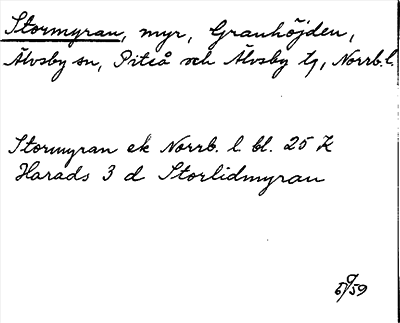 Stormyran, myr, Granhöjden,
Älvsby sn, Piteå och Älvsby tg, Norrb. l.
Stormyran ek Norrb. l. bl. 25 K
Harads 3 d Storlidmyran
59